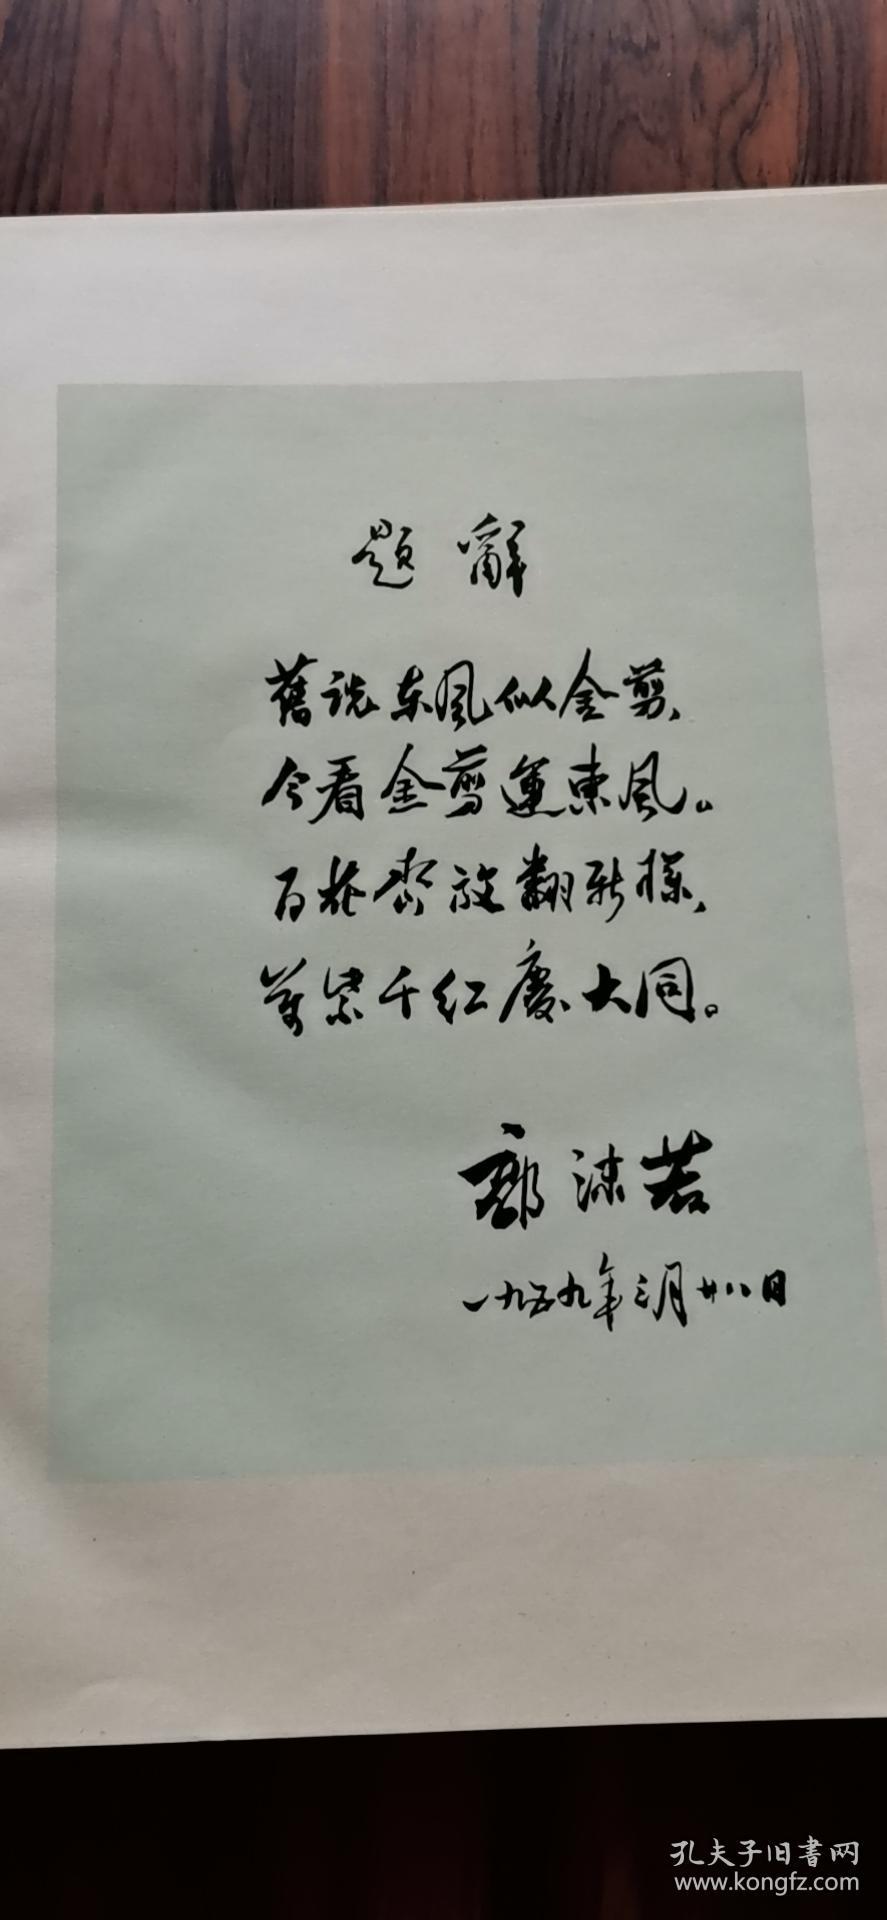 题辭
舊说东風似金剪、
今看金剪運東風。
百花齐放翻新样、
萬紫千红慶大同。
郭沫若
一九五九年三月廿八日
孔夫子旧書网
www.kongfz.com